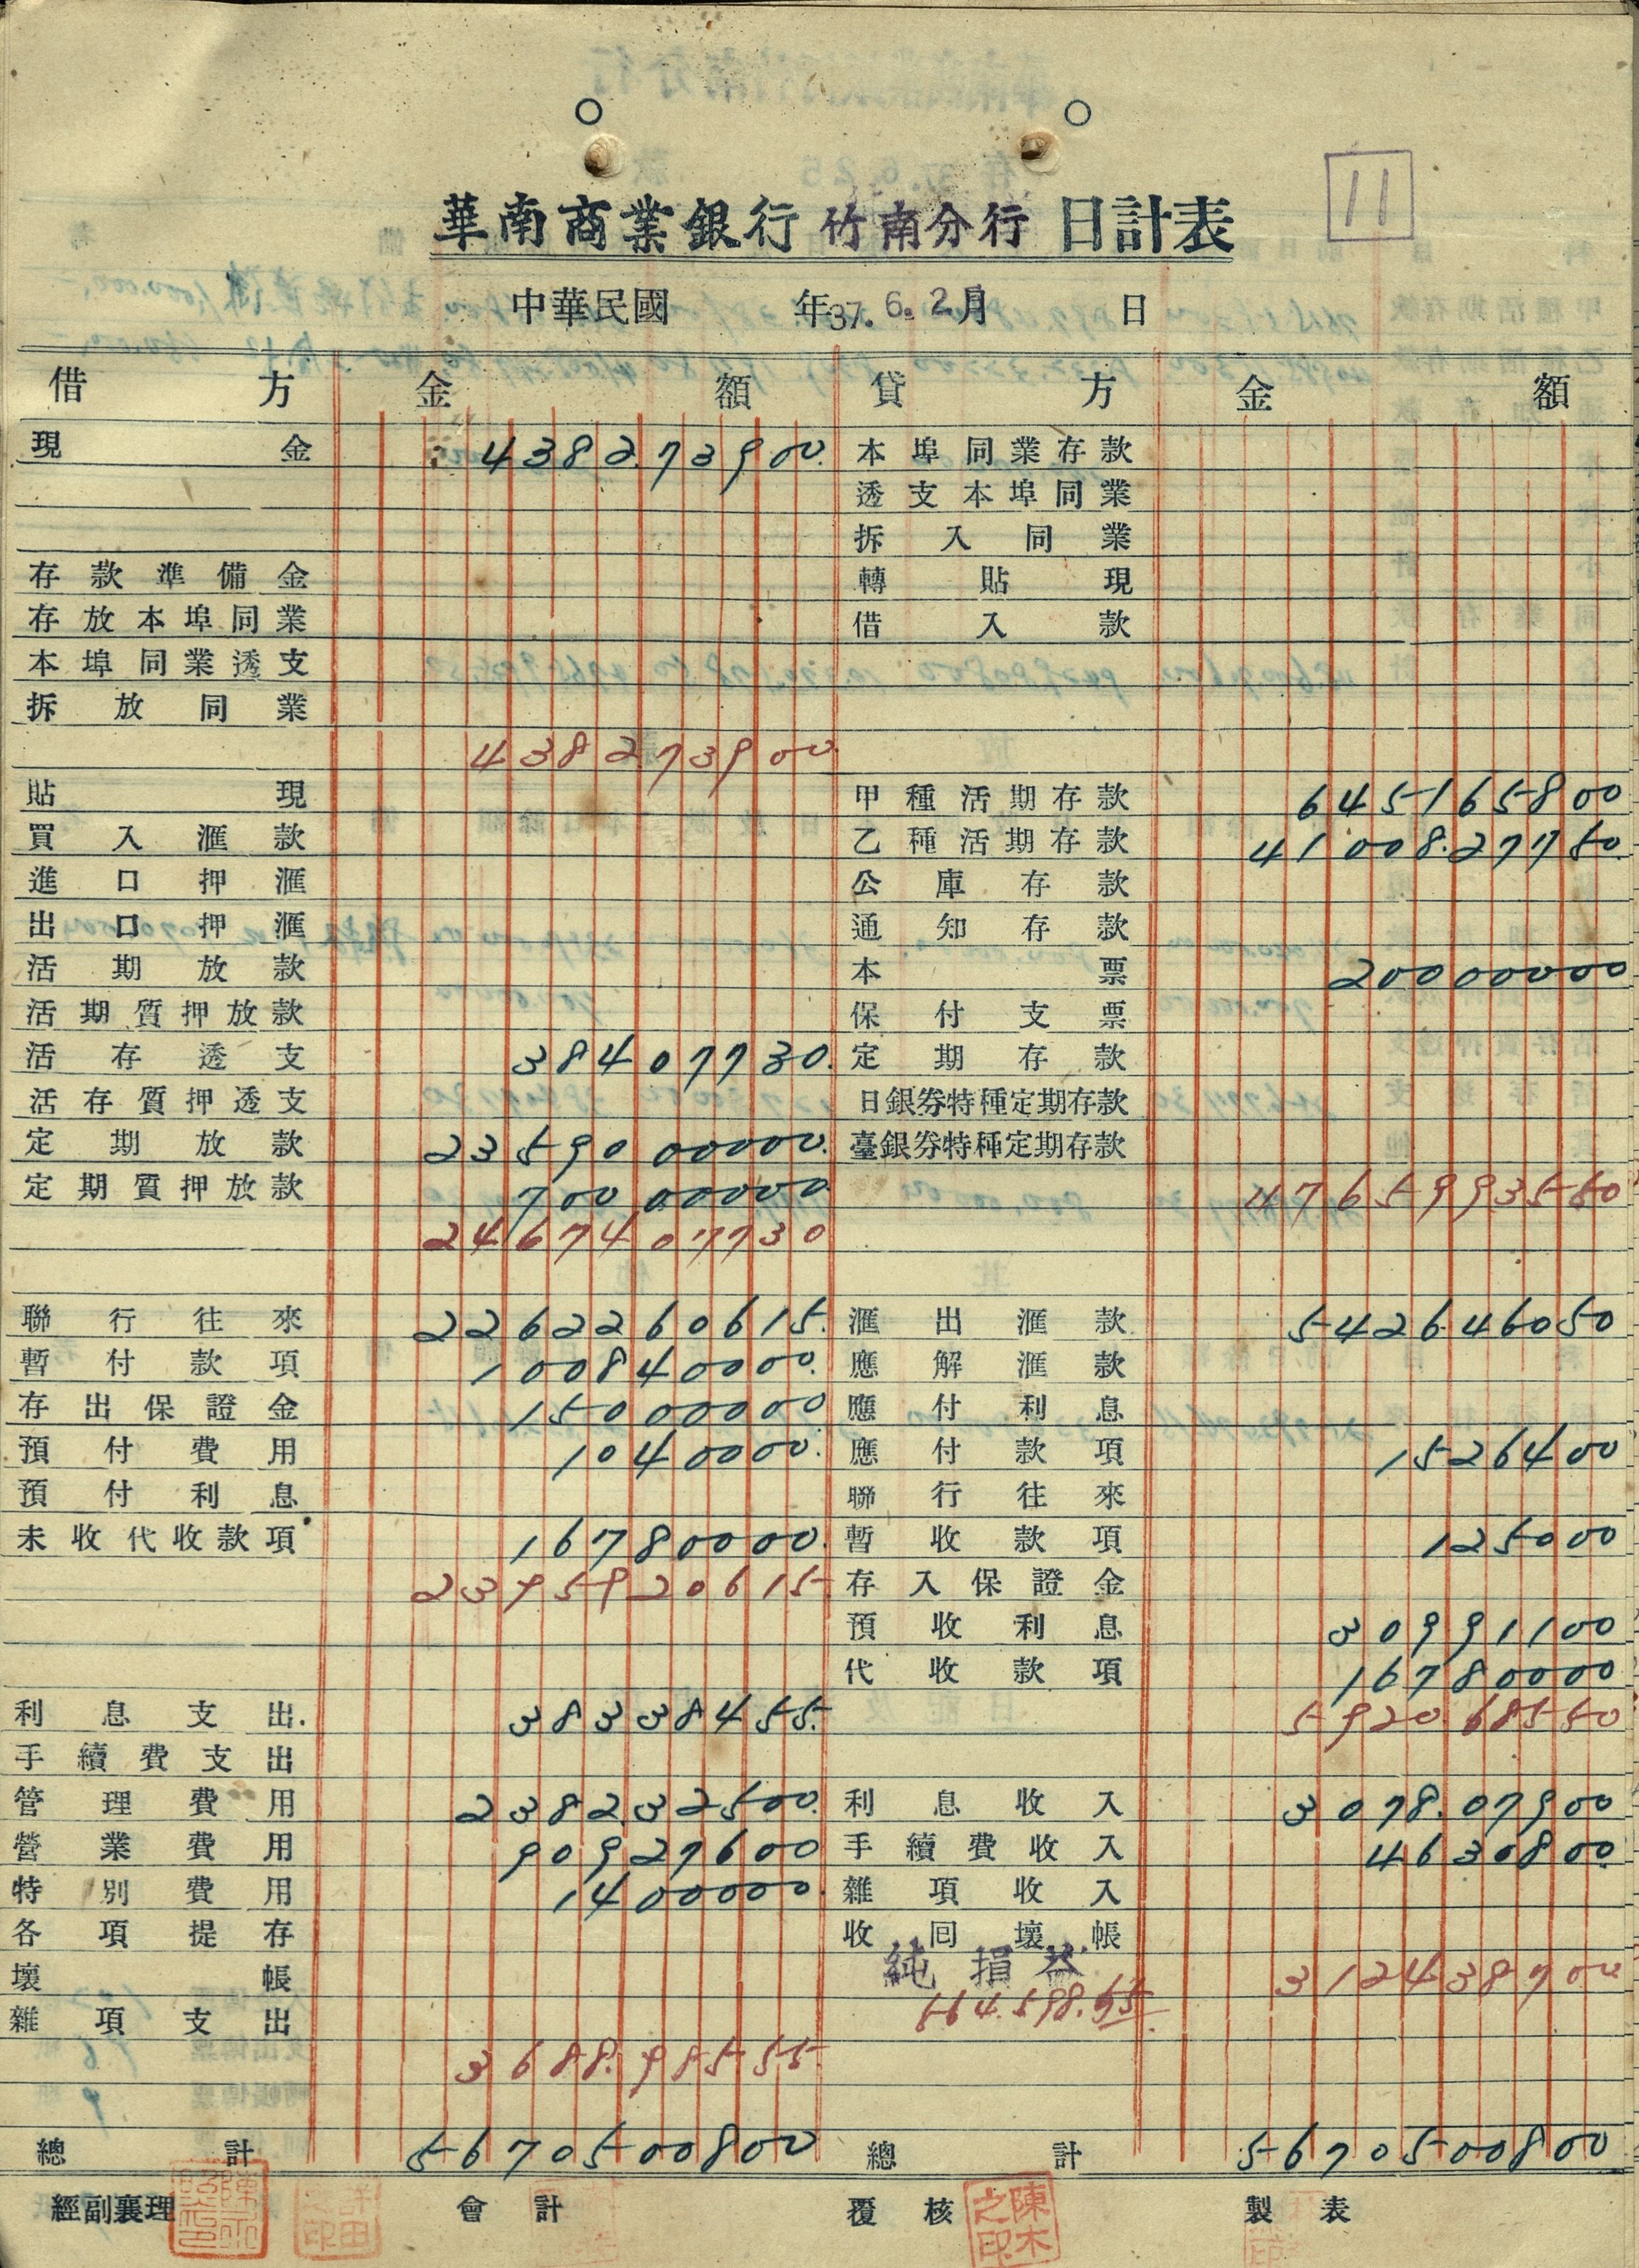 11
華南商業銀行 竹南分行 日計表
中華民國 年 37. 6. 2 月 日
借方 金額 貸方 金額
現金 4382.73900. 本埠同業存款
透支本埠同業
拆入同業
存款準備金 轉貼現
存放本埠同業 借入款
本埠同業透支
拆放同業
4382.73900.
貼現 甲種活期存款 645165800
買入滙款 乙種活期存款 41008.27750.
進口押滙 公庫存款
出口押滙 通知存款
活期放款 本票 20000000
活期質押放款 保付支票
活存透支 38407730. 定期存款
活存質押透支 日銀券特種定期存款
定期放款 2359000000. 臺銀券特種定期存款
定期質押放款 70000000 4765993550
2467407730
聯行往來 2262260615. 滙出滙款 542646050
暫付款項 100840000. 應解滙款
存出保證金 15000000 應付利息
預付費用 1040000. 應付款項 1526400
預付利息 聯行往來
未收代收款項 16780000. 暫收款項 125000
2395920615. 存入保證金
預收利息 30991100
代收款項 16780000
利息支出 38338455. 5920.68550
手續費支出
管理費用 238232500. 利息收入 3078.07900
營業費用 90927600 手續費收入 4630800.
特別費用 1400000. 雜項收入
各項提存 收回壞帳
純損益
壞帳 312438700
564.598.55
雜項支出
3688.98555.
總計 5670500800 總計 5670500800
經副襄理 會計 覆核 陳木之印 製表